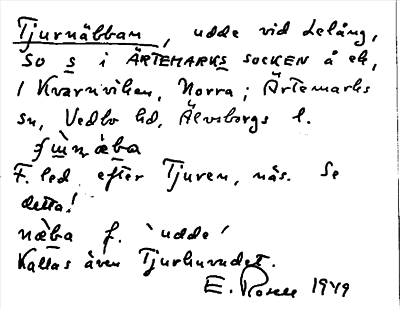 Tjurnäbban, udde vid Lelång,
SO s i ÄRTEMARKS SOCKEN å ek,
1 Kvarnviken, Norra; Ärtemarks
sn, Vedbo hd, Älvsborgs l.
F. led efter Tjuren, näs. Se
detta!
næ̀ba f. `udde´
Kallas även Tjurhuvudet.
E. Rosell 1949